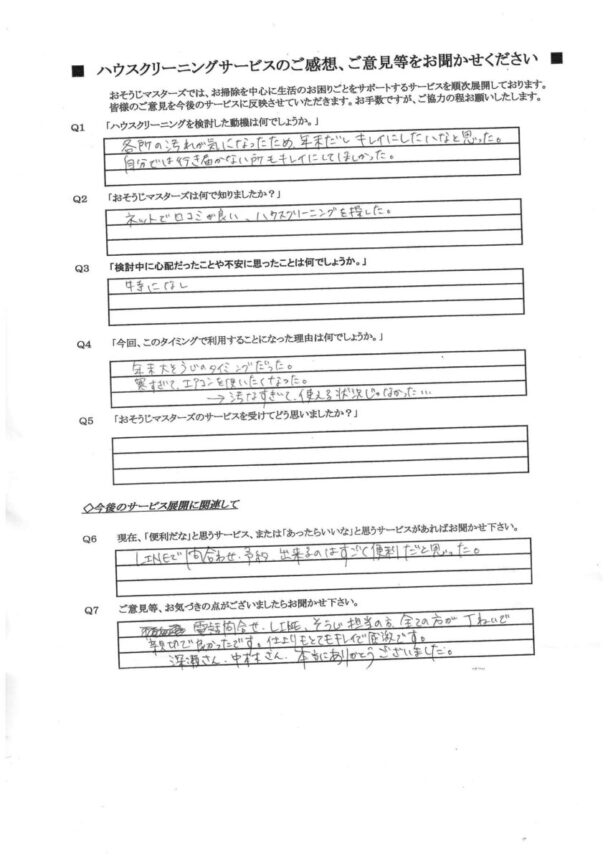 ■ ハウスクリーニングサービスのご感想、ご意見等をお聞かせください ■
おそうじマスターズでは、お掃除を中心に生活のお困りごとをサポートするサービスを順次展開しております。
皆様のご意見を今後のサービスに反映させていただきます。お手数ですが、ご協力の程お願いいたします。
Q1 「ハウスクリーニングを検討した動機は何でしょうか。」
各所の汚れが気になったため、年末だしキレイにしたいなと思った。
自分では行き届かない所もキレイにしてほしかった。
Q2 「おそうじマスターズは何で知りましたか？」
ネットで口コミが良い、ハウスクリーニングを探した。
Q3 「検討中に心配だったことや不安に思ったことは何でしょうか。」
特になし
Q4 「今回、このタイミングで利用することになった理由は何でしょうか。」
年末大そうじのタイミングだった。
寒すぎて、エアコンを使いたくなった。
→汚なすぎて、使える状況じゃなかった…
Q5 「おそうじマスターズのサービスを受けてどう思いましたか？」
◇今後のサービス展開に関連して
Q6 現在、「便利だな」と思うサービス、または「あったらいいな」と思うサービスがあればお聞かせ下さい。
LINEで問合わせ・予約、出来るのはすごく便利だと思った。
Q7 ご意見等、お気づきの点がございましたらお聞かせ下さい。
電話問合せ・LINE、そうじ担当の方、全ての方が丁ねいで
親切で良かったです。仕上りもとてもキレイで感激です。
深瀬さん、中村さん、本当にありがとうございました。